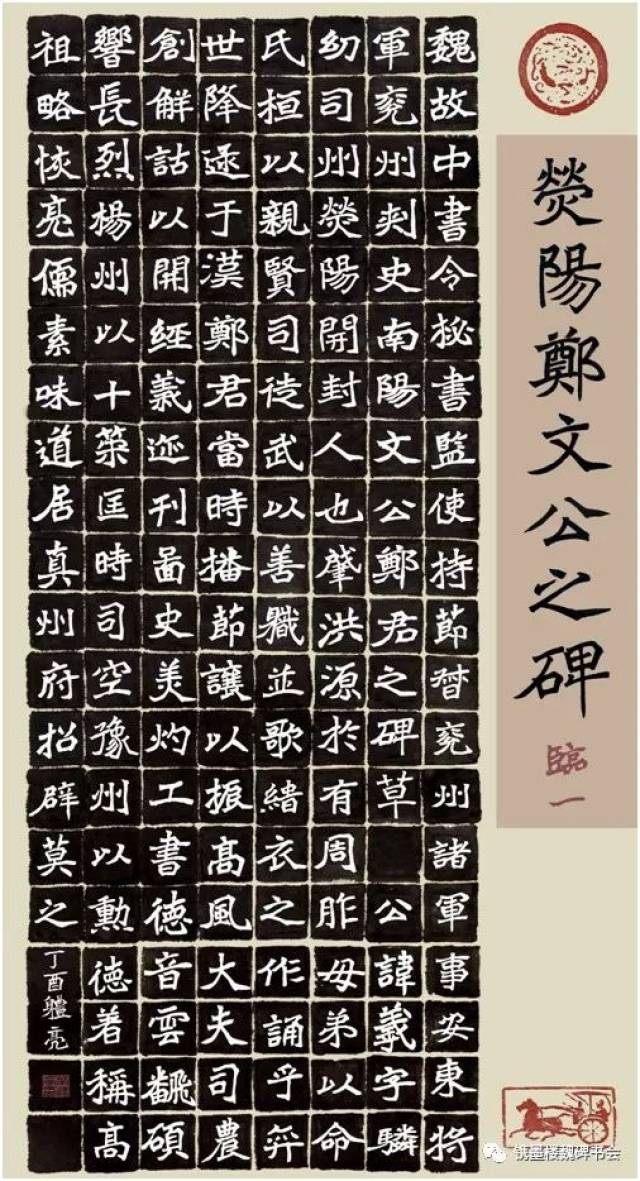 熒陽鄭文公之碑
臨一
魏故中書令秘書監使持節督兖州諸軍事安東将
軍兖州刾史南陽文公鄭君之碑草 公諱羲字驎
幼司州熒陽開封人也肇洪源於有周胙母弟以命
氏桓以親賢司徒武以善職並歌緇衣之作誦乎弈
世降逯于漢鄭君當時播節讓以振高風大夫司農
創解詁以開經義迹刊啚史美灼工書德音雲飜碩
響長烈楊州以十策匡時司空豫州以勳德著稱高
祖略恢亮儒素味道居真州府招辟莫之
丁酉軆亮
墨楼魏碑书会